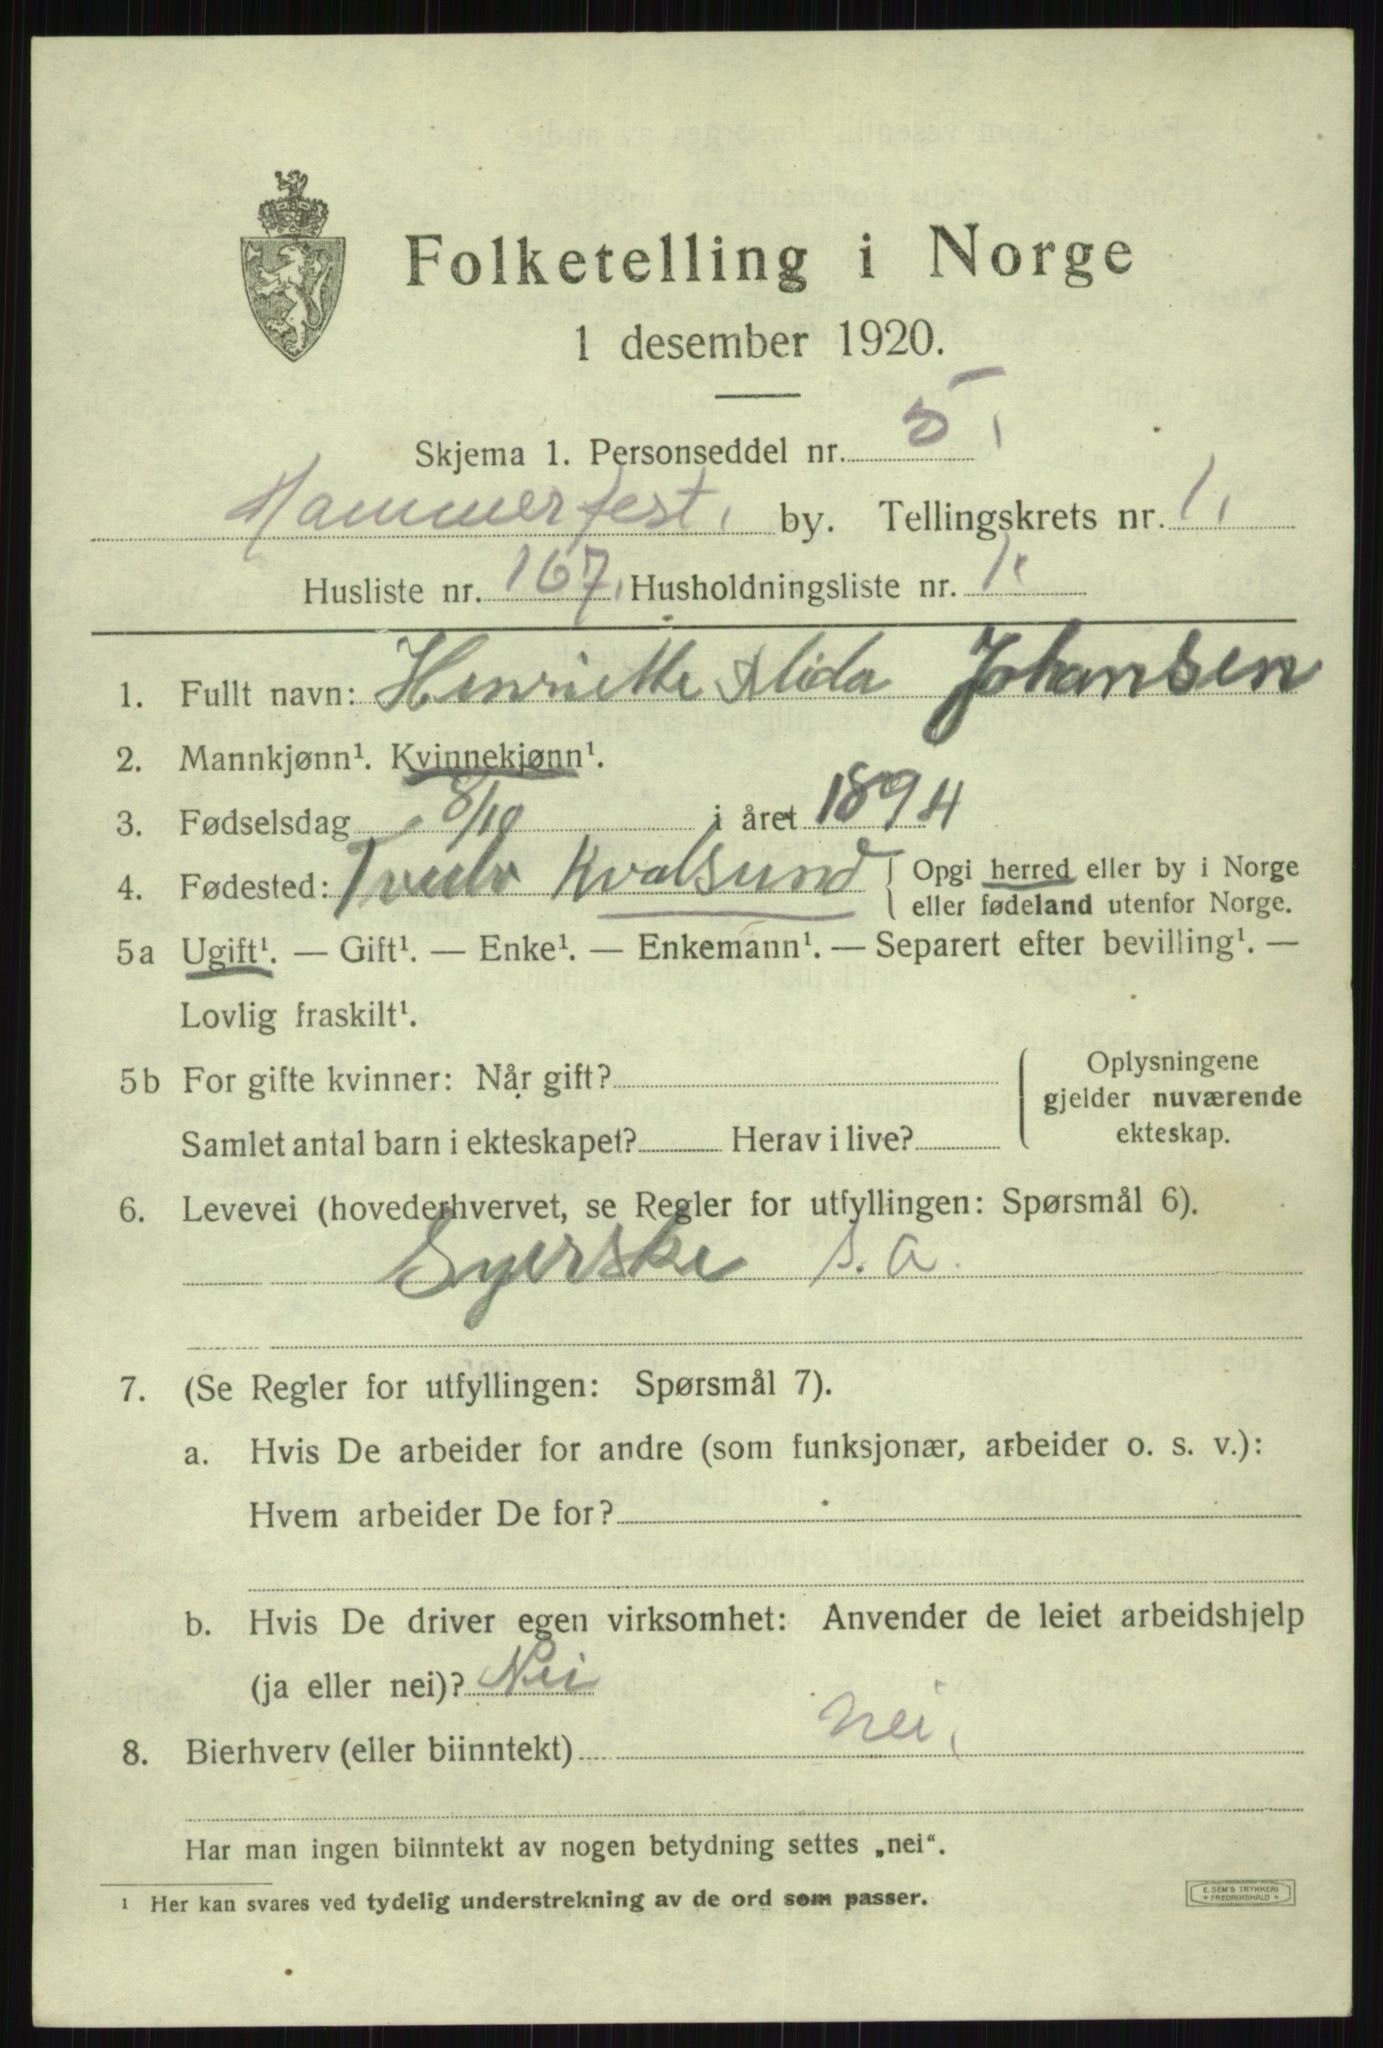 Folketelling i Norge
1 desember 1920.
Skjema 1. Personseddel nr. 5,
Hammerfest, by. Tellingskrets nr. 1,
Husliste nr. 167, Husholdningsliste nr. 1.
1. Fullt navn: Henriette Alida Johansen
2. Mannkjønn¹. Kvinnekjønn¹.
3. Fødselsdag 8/10 i året 1894
4. Fødested: Kvalsund { Opgi herred eller by i Norge
eller fødeland utenfor Norge.
5a Ugift¹. — Gift¹. — Enke¹. — Enkemann¹. — Separert efter bevilling¹. —
Lovlig fraskilt¹.
5b For gifte kvinner: Når gift?
Samlet antal barn i ekteskapet? Herav i live?
{ Oplysningene
gjelder nuværende
ekteskap.
6. Levevei (hovederhvervet, se Regler for utfyllingen: Spørsmål 6).
Syerske s. a.
7. (Se Regler for utfyllingen: Spørsmål 7).
a. Hvis De arbeider for andre (som funksjonær, arbeider o. s. v.):
Hvem arbeider De for?
b. Hvis De driver egen virksomhet: Anvender de leiet arbeidshjelp
(ja eller nei)? Nei
8. Bierhverv (eller biinntekt) nei,
Har man ingen biinntekt av nogen betydning settes „nei“.
¹ Her kan svares ved tydelig understrekning av de ord som passer.
E. SEM'S TRYKKERI
* FREDRIKSHALD *